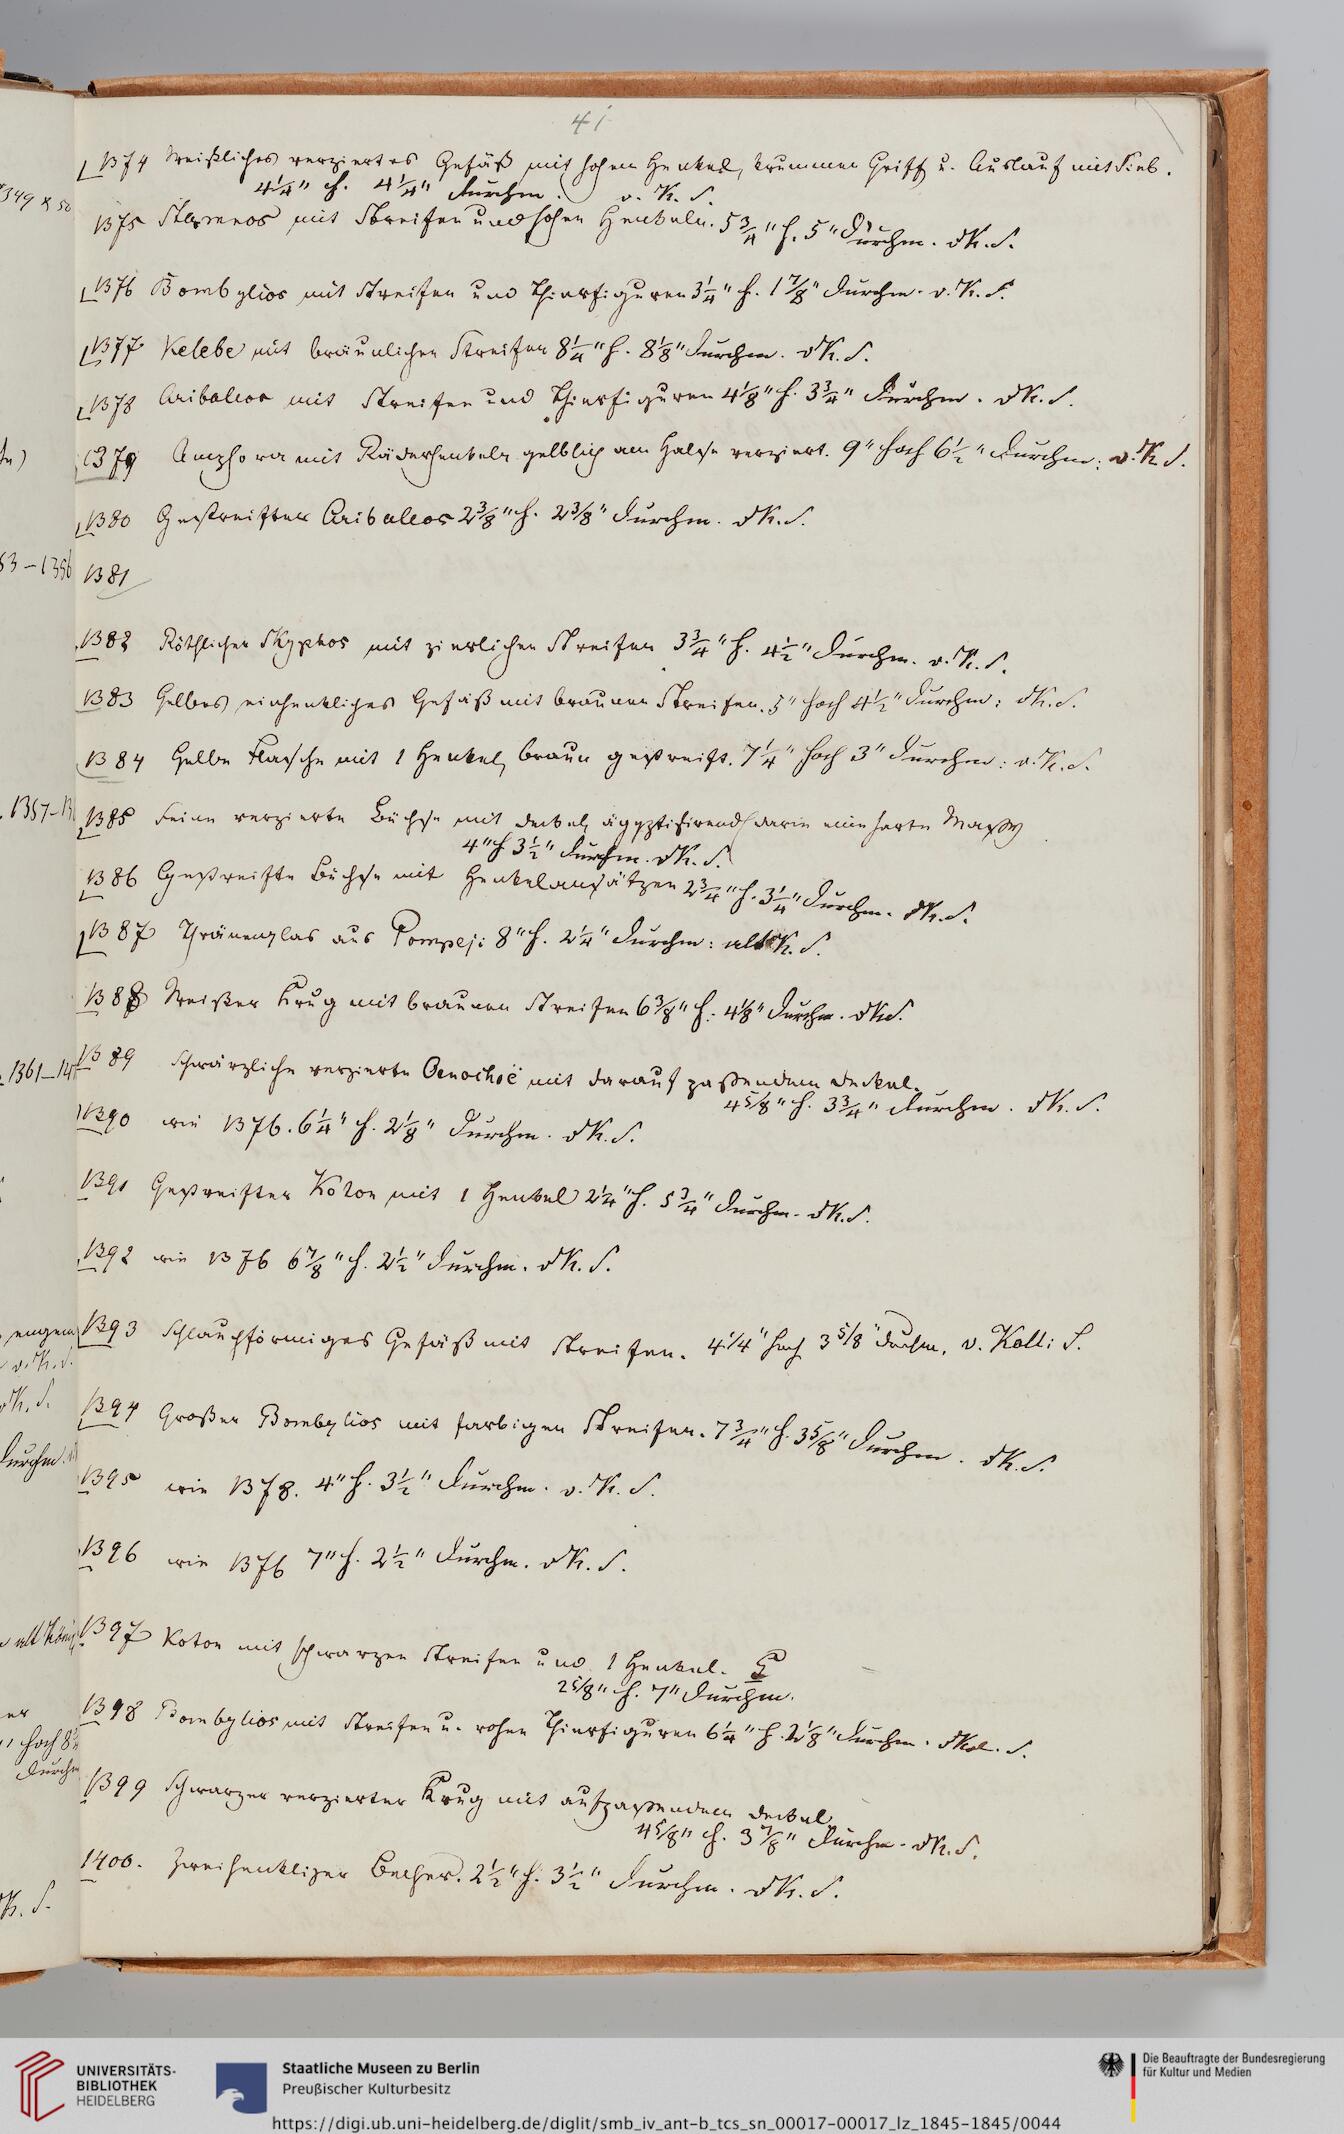 41
1374 Weißliches verziertes Gefäß mit hohem Henkel, krummen Griff u. Auslauf mit Sieb.
4¼" h. 4¼" Durchm. v. K. S.
1375 Stamnos mit Streifen und hohen Henkeln. 5¾" h. 5" Durchm. v K. S.
1376 Bombylios mit Streifen und Thierfiguren 3¼" h. 1⅞" Durchm. v. K. S.
1377 Kelebe mit bräunlichen Streifen 8¼" h. 8⅛" Durchm. v K. S.
1378 Aribalcos mit Streifen und Thierfiguren 4⅛" h. 3¾" Durchm. v K. S.
1379 Amphora mit Räderhenkeln gelblich am Halse verziert. 9" hoch 6½" Durchm: v. K. S.
1380 Gestreifter Aribalcos 2⅜" h. 2⅜" Durchm. v K. S.
1381
1382 Röthlicher Skyphos mit zierlichen Streifen 3¾" h. 4½" Durchm. v. K. S.
1383 Gelbes einhenkliges Gefäß mit braunen Streifen. 5" hoch 4½" Durchm: v K. S.
1384 Gelbe Flasche mit 1 Henkel, braun gestreift. 7¼" hoch 3" Durchm: v. K. S.
1385 Feine verzierte Büchse mit Deckel, ägyptisirend (darin eine harte Masse)
4" h 3½" Durchm. v K. S.
1386 Gestreifte Büchse mit Henkelansätzen 2¾" h. 3¼" Durchm. v K. S.
1387 Thränenglas aus Pompeji 8" h. 2¼" Durchm: alt K. S.
1388 Weißer Krug mit braunen Streifen 6⅜" h. 4⅛" Durchm. v K S.
1389 Schwärzliche verzierte Oenochoë mit darauf passendem Deckel.
4⅝" h. 3¾" Durchm. v K. S.
1390 wie 1376. 6¼" h. 2⅛" Durchm. v K. S.
1391 Gestreifter Koton mit 1 Henkel 2¼" h. 5¾" Durchm. v K. S.
1392 wie 1376 6⅞" h. 2½" Durchm. v K. S.
1393 Schlauchförmiges Gefäß mit Streifen. 4¼" hoch 3⅝" Durchm. v. Koll: S.
1394 Großer Bombylios mit farbigen Streifen. 7¾" h. 3⅝" Durchm. v K. S.
1395 wie 1378. 4" h. 3½" Durchm. v. K. S.
1396 wie 1376 7" h. 2½" Durchm. v K. S.
1397 Koton mit schwarzen Streifen und 1 Henkel. G
2⅝" h. 7" Durchm.
1398 Bombylios mit Streifen u. rohen Thierfiguren 6¼" h. 2⅛" Durchm. v Kol. S.
1399 Schwarzer verzierter Krug mit aufpassendem Deckel
4⅝" h. 3⅞" Durchm. v K. S.
1400. Zweihenkliger Becher. 2½" h. 3½" Durchm. v K. S.
UNIVERSITÄTS-
BIBLIOTHEK
HEIDELBERG
Staatliche Museen zu Berlin
Preußischer Kulturbesitz
Die Beauftragte der Bundesregierung
für Kultur und Medien
https://digi.ub.uni-heidelberg.de/diglit/smb_iv_ant-b_tcs_sn_00017-00017_lz_1845-1845/0044